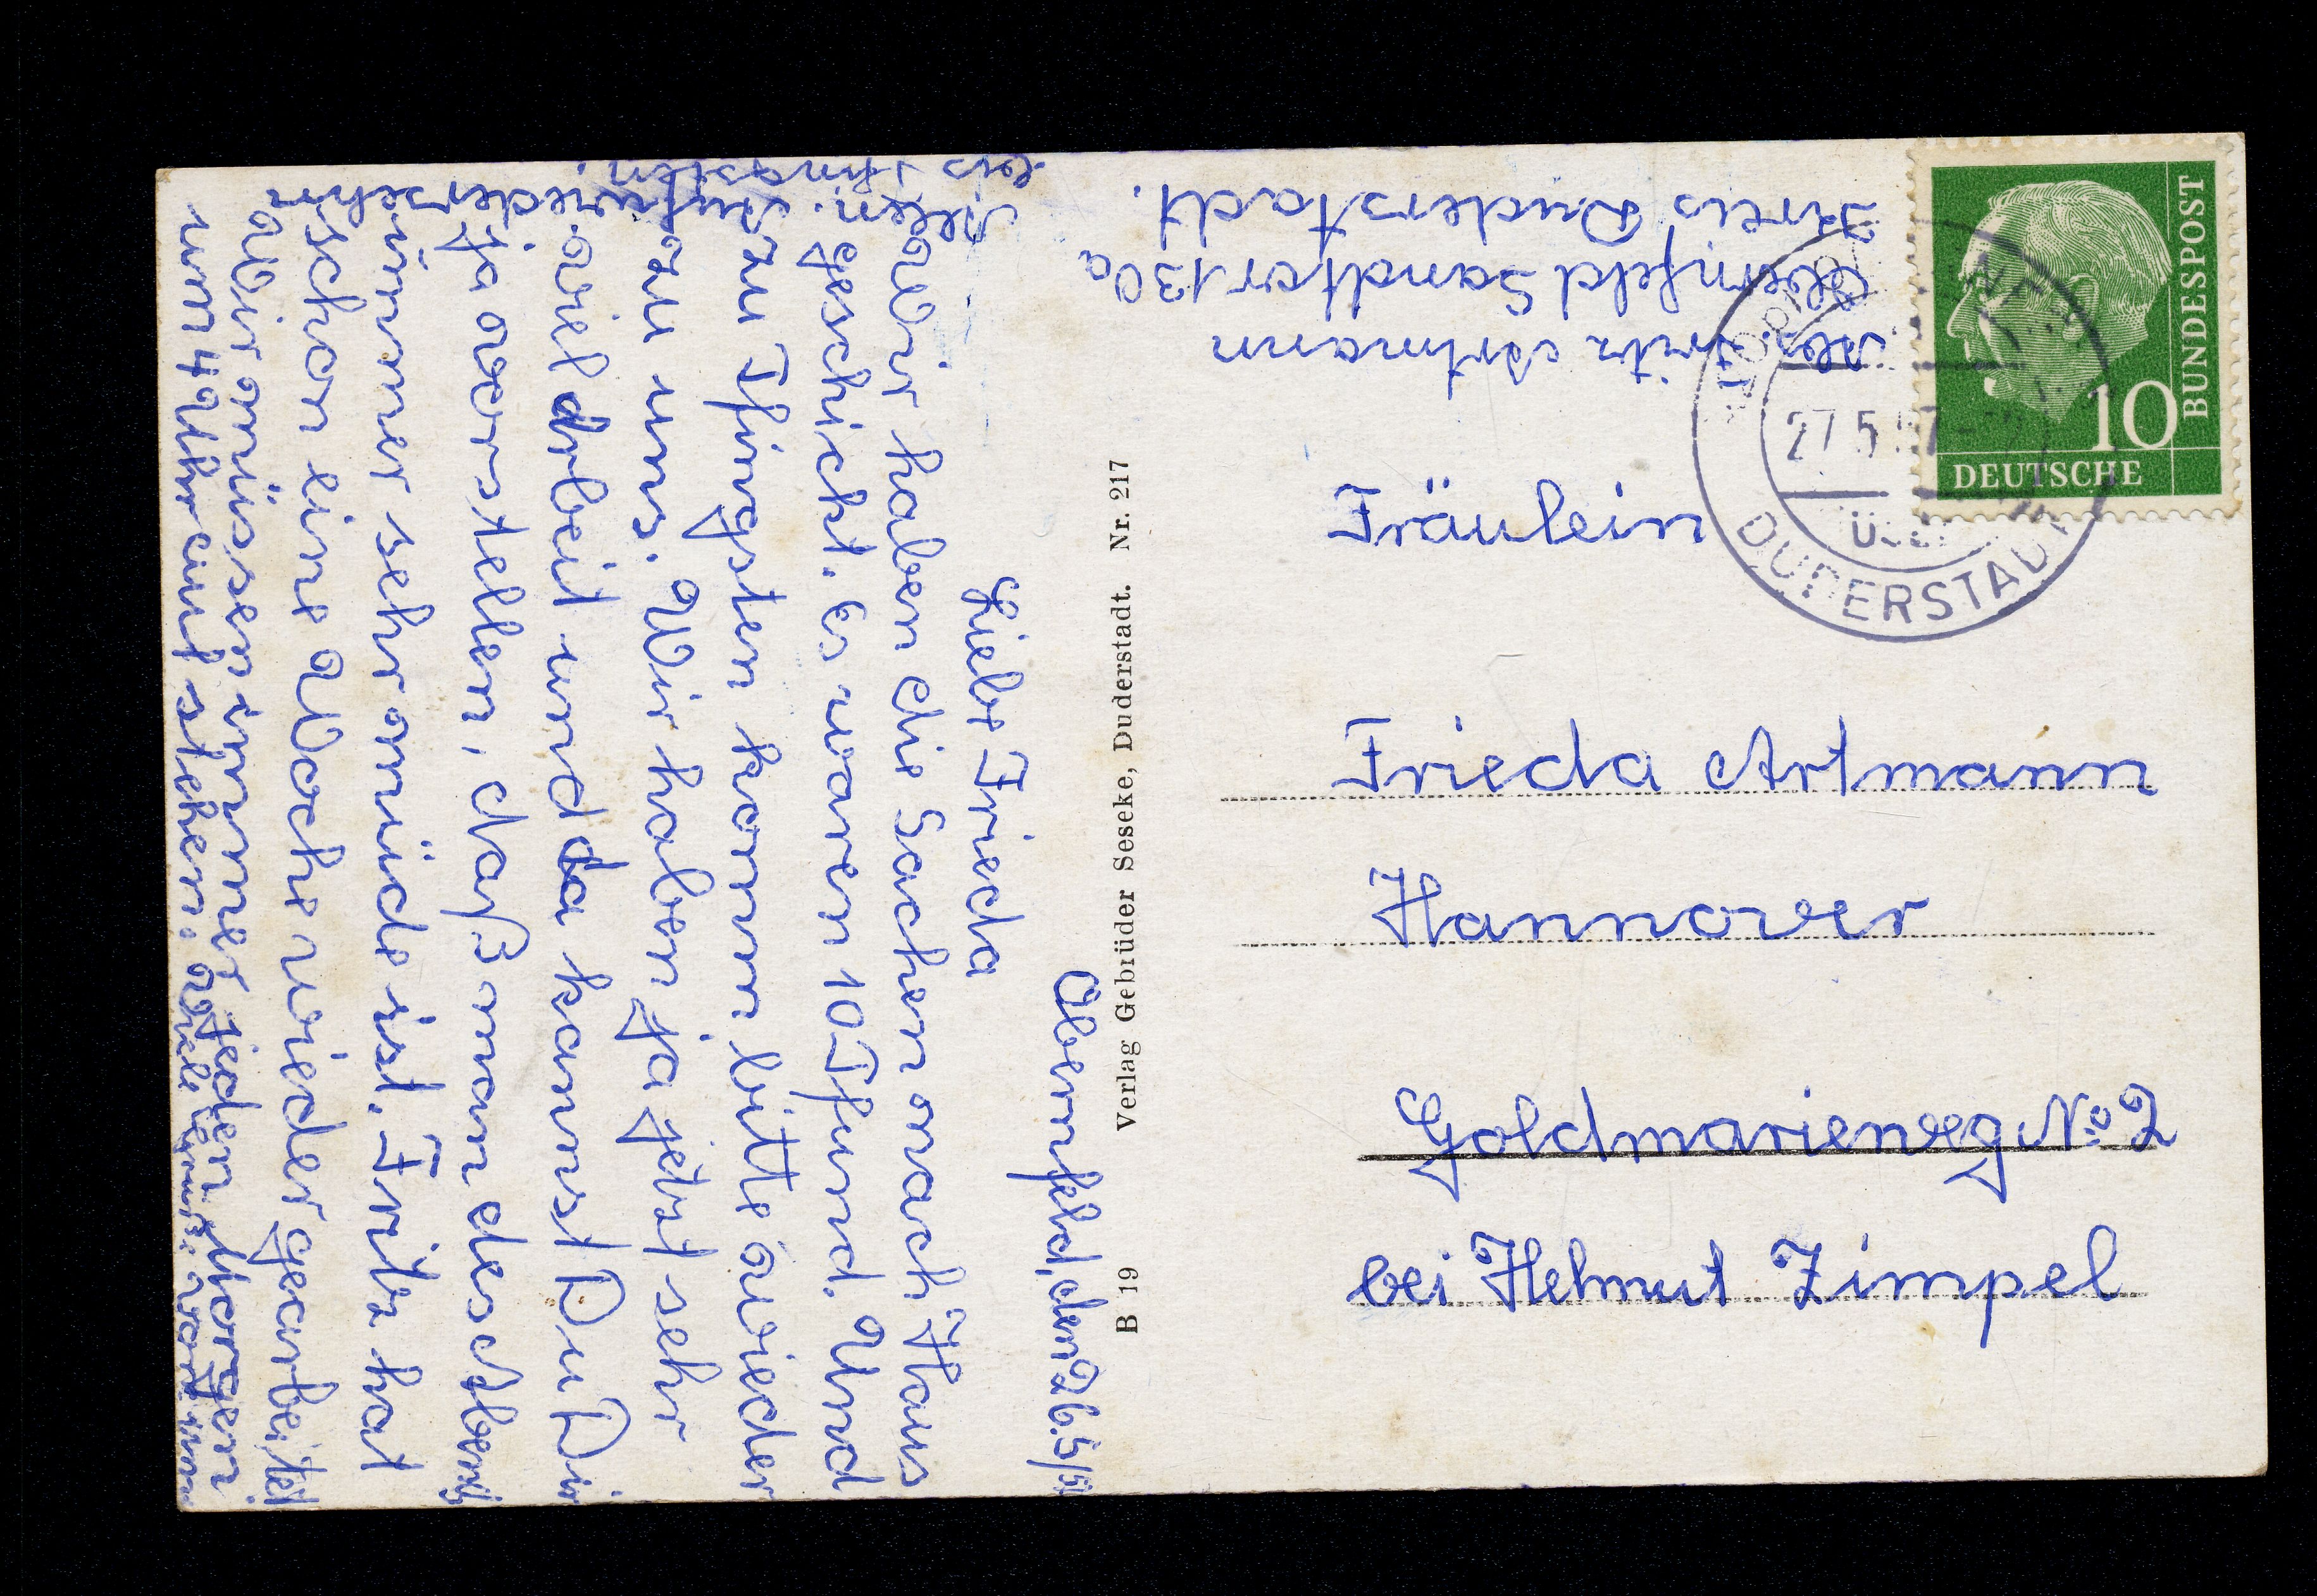 Obernfeld, den 26.5/57
Liebe Frieda
Wir haben die Sachen nach Haus
geschickt. Es waren 10 Pfund. Und
zu Pfingsten komm bitte wieder
zu uns. Wir haben ja jetzt sehr
viel Arbeit und da kannst Du Dir
ja vorstellen, daß man des Abends
immer sehr müde ist. Fritz hat
schon eine Woche wieder gearbeitet
Wir müssen immer jeden Morgen
um 4 Uhr aufstehen. Viele Grüße von
allen. Auf Wiedersehn
bis Pfingsten.
Verlag Gebrüder Seseke, Duderstadt. Nr. 217
B 19
Abs. Fritz Artmann
Obernfeld Sandtor 130a
Kreis Duderstadt.
DEUTSCHE
BUNDESPOST
10
27.5.57
DUDERSTADT
Fräulein
Frieda Artmann
Hannover
Goldmarieweg No 2
bei Helmut Zimpel